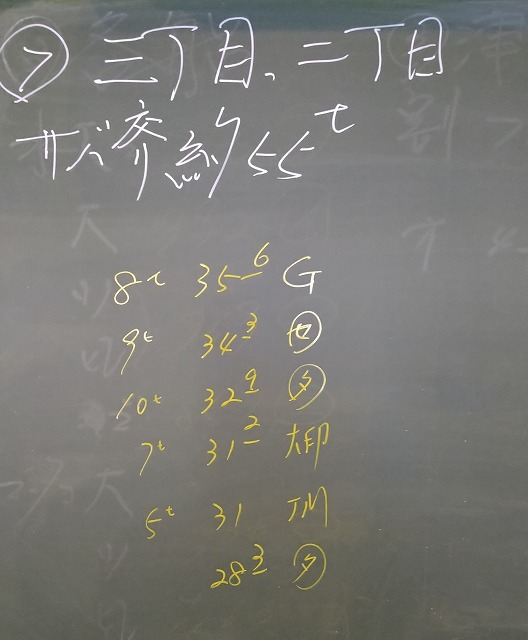 ㋫ 三丁目、二丁目
サバ済約55t
8t 35⁶ G
9t 34³ ㋝
10t 32⁹ ㋟
7t 31² 大印
5t 31 TM
28³ ㋟